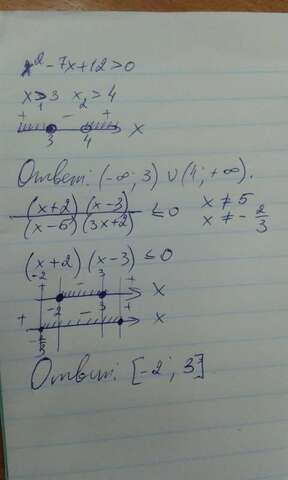 x² - 7x + 12 > 0
x₁ > 3 x₂ > 4
+ - +
3 4 x
Ответ: (-∞; 3) ∪ (4; +∞).
(x+2) (x-3) / (x-5) (3x+2) ≤ 0 x ≠ 5
x ≠ -2/3
(x+2) (x-3) ≤ 0
-2 3
+ - +
-2 3 x
+ - + x
Ответ: [-2; 3]